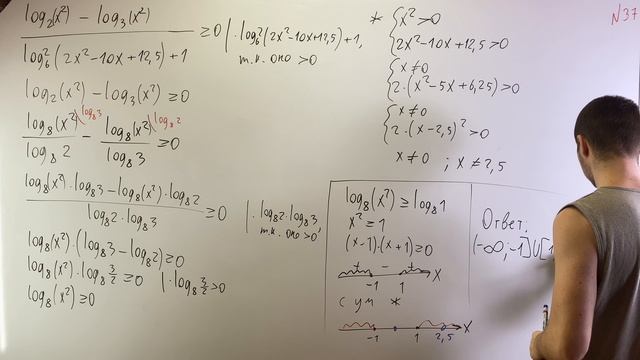 N37
log₂(x²) − log₃(x²)
log₆²(2x²−10x+12,5)+1
≥0 | · log₆²(2x²−10x+12,5)+1,
т.к. оно >0
log₂(x²) − log₃(x²) ≥0
log₈(x²) \log₈3 − log₈(x²) \log₈2 ≥0
log₈2 log₈3
log₈(x²)·log₈3−log₈(x²)·log₈2 ≥0 | · log₈2·log₈3,
log₈2·log₈3 т.к. оно >0
log₈(x²)·(log₈3−log₈2)≥0
log₈(x²)·log₈ 3/2 ≥0 | · log₈ 3/2 >0
log₈(x²) ≥0
* { x² >0
2x²−10x+12,5>0
{ x≠0
2·(x²−5x+6,25)>0
{ x≠0
2·(x−2,5)²>0
x≠0 ; x≠2,5
log₈(x²) ≥ log₈1
x² = 1
(x−1)·(x+1)≥0
+ − +
−1 1 x
с уч *
−1 1 2,5 x
Ответ:
(−∞;−1]∪[1